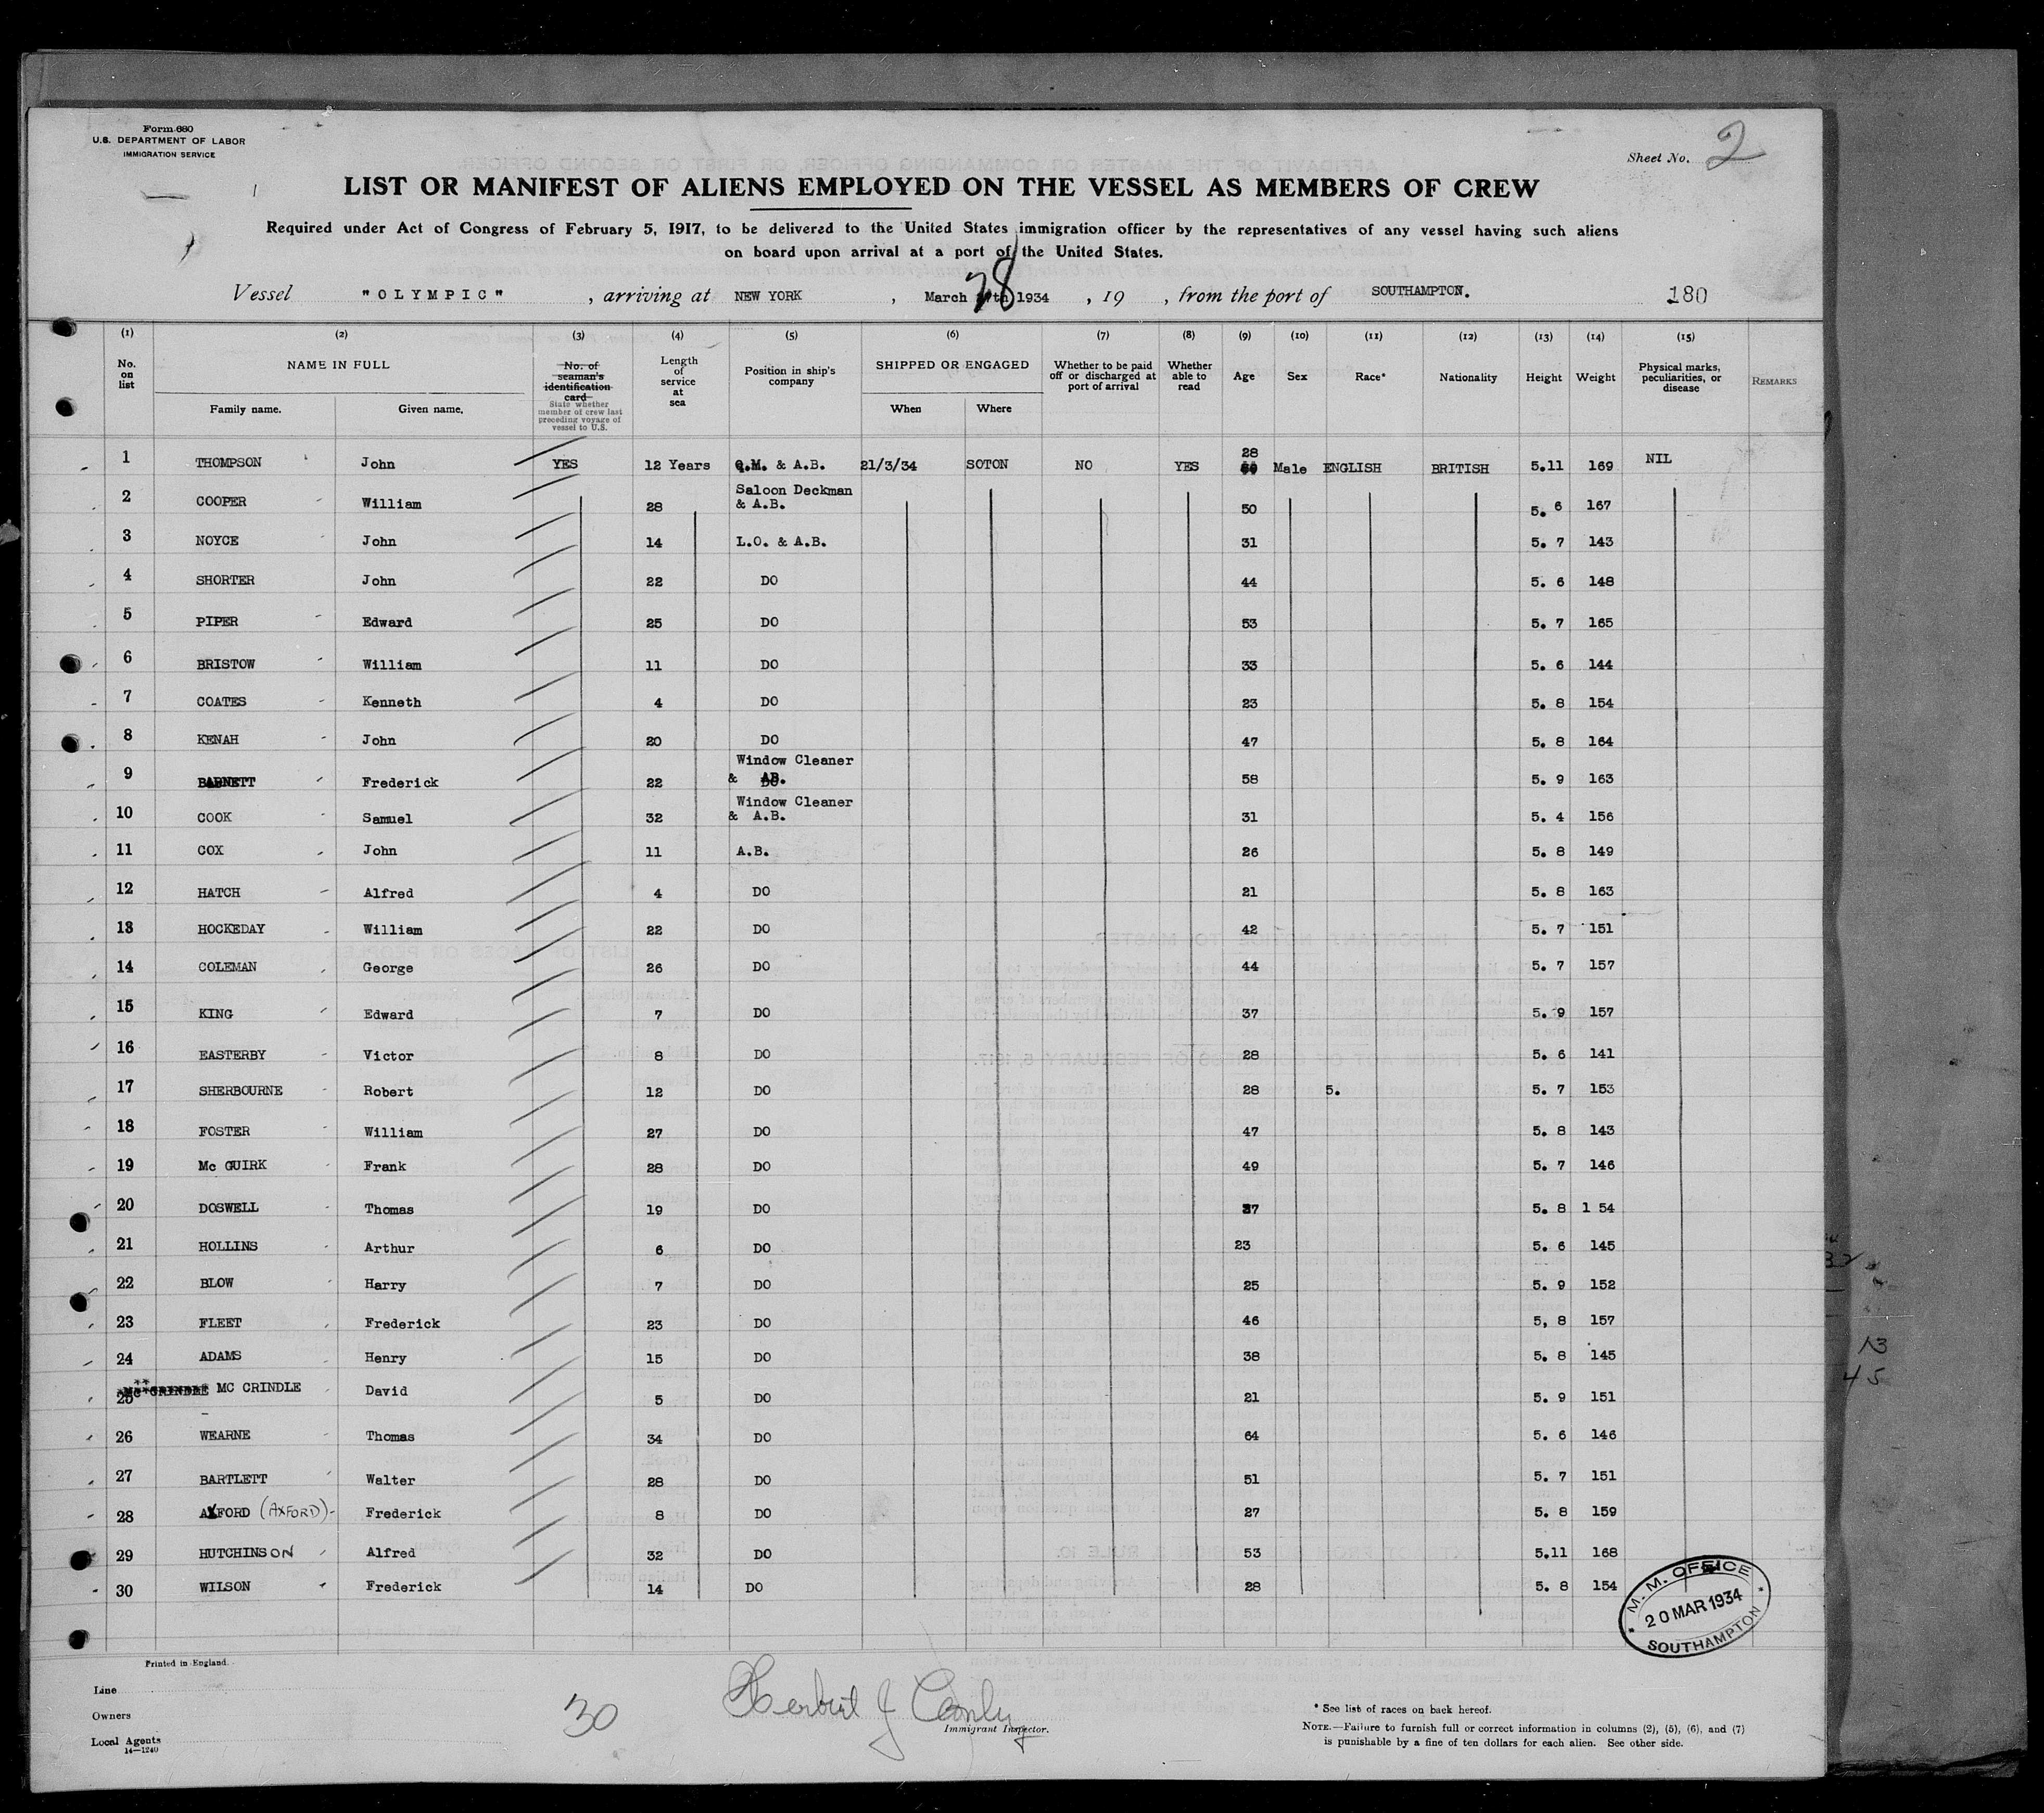 Form 680
U.S. DEPARTMENT OF LABOR
IMMIGRATION SERVICE
Sheet No. 2
LIST OR MANIFEST OF ALIENS EMPLOYED ON THE VESSEL AS MEMBERS OF CREW
Required under Act of Congress of February 5, 1917, to be delivered to the United States immigration officer by the representatives of any vessel having such aliens
on board upon arrival at a port of the United States.
Vessel "OLYMPIC", arriving at NEW YORK, March 28 1934, 19 , from the port of SOUTHAMPTON. 180
(1) (2) (3) (4) (5) (6) (7) (8) (9) (10) (11) (12) (13) (14) (15)
No. on list NAME IN FULL Family name. Given name. No. of seaman's identification card State whether member of crew last preceding voyage of vessel to U.S. Length of service at sea Position in ship's company SHIPPED OR ENGAGED When Where Whether to be paid off or discharged at port of arrival Whether able to read Age Sex Race* Nationality Height Weight Physical marks, peculiarities, or disease REMARKS
1 THOMPSON John YES 12 Years Q.M. & A.B. 21/3/34 SOTON NO YES 28 Male ENGLISH BRITISH 5.11 169 NIL
2 COOPER William 28 Saloon Deckman & A.B. 50 5. 6 167
3 NOYCE John 14 L.O. & A.B. 31 5. 7 143
4 SHORTER John 22 DO 44 5. 6 148
5 PIPER Edward 25 DO 53 5. 7 165
6 BRISTOW William 11 DO 33 5. 6 144
7 COATES Kenneth 4 DO 23 5. 8 154
8 KENAH John 20 DO 47 5. 8 164
9 BARNETT Frederick 22 Window Cleaner & AB. 58 5. 9 163
10 COOK Samuel 32 Window Cleaner & A.B. 31 5. 4 156
11 COX John 11 A.B. 26 5. 8 149
12 HATCH Alfred 4 DO 21 5. 8 163
13 HOCKEDAY William 22 DO 42 5. 7 151
14 COLEMAN George 26 DO 44 5. 7 157
15 KING Edward 7 DO 37 5. 9 157
16 EASTERBY Victor 8 DO 28 5. 6 141
17 SHERBOURNE Robert 12 DO 28 5. 5. 7 153
18 FOSTER William 27 DO 47 5. 8 143
19 Mc GUIRK Frank 28 DO 49 5. 7 146
20 DOSWELL Thomas 19 DO 37 5. 8 1 54
21 HOLLINS Arthur 6 DO 23 5. 6 145
22 BLOW Harry 7 DO 25 5. 9 152
23 FLEET Frederick 23 DO 46 5, 8 157
24 ADAMS Henry 15 DO 38 5. 8 145
25 MC CRINDLE David 5 DO 21 5. 9 151
26 WEARNE Thomas 34 DO 64 5. 6 146
27 BARTLETT Walter 28 DO 51 5. 7 151
28 AXFORD (AXFORD) Frederick 8 DO 27 5. 8 159
29 HUTCHINSON Alfred 32 DO 53 5.11 168
30 WILSON Frederick 14 DO 28 5. 8 154
M. M. OFFICE
20 MAR 1934
SOUTHAMPTON
Printed in England.
Line
Owners
Local Agents
14—1240
30
Herbert J
Immigrant Inspector.
* See list of races on back hereof.
NOTE.—Failure to furnish full or correct information in columns (2), (5), (6), and (7)
is punishable by a fine of ten dollars for each alien. See other side.
13
45